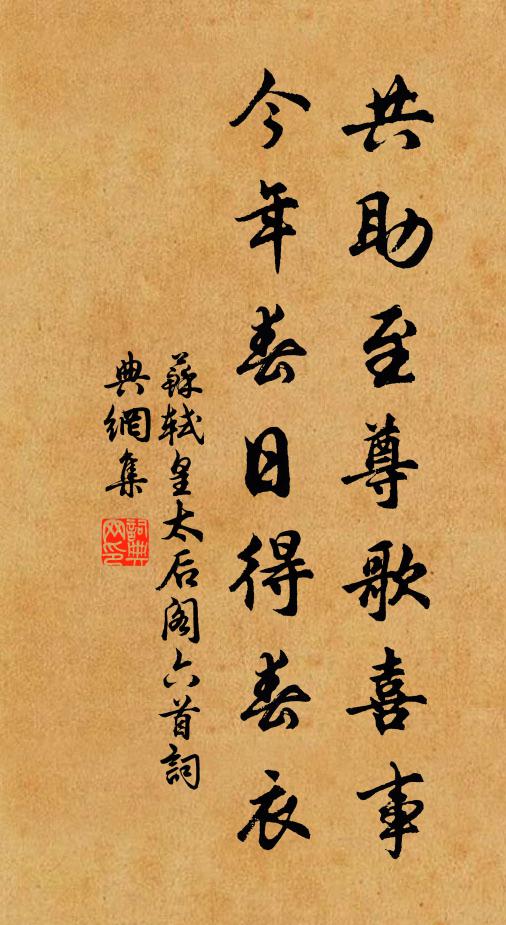 共助至尊歌喜事
今年春日得春衣
蘇軾皇太后阁六首詞
典網集
詞典
网印